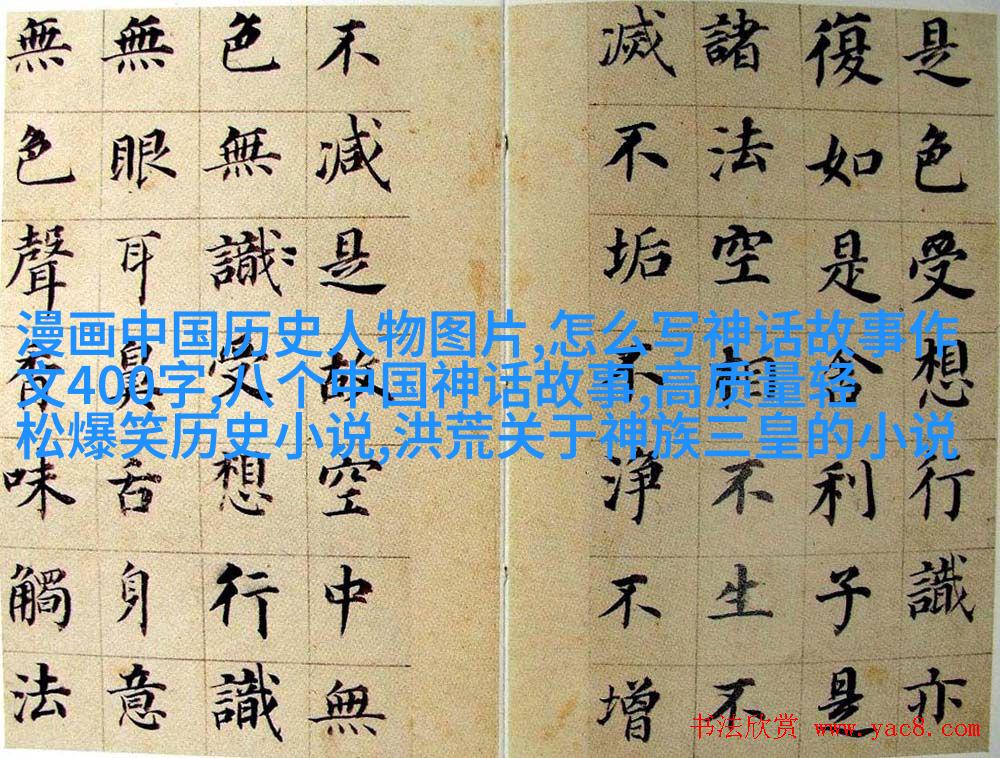 是色受想行識亦
復如是舍利子是
諸法空相不生不
滅不垢不淨不增
不減是故空中無
色無識受想行識
無眼耳鼻舌身意
無色聲香味觸法
漫画中国历史人物图片,怎么写神话故事作
文400字,八个中国神话故事,高质量轻
松爆笑历史小说,洪荒关于神族三皇的小说
书法欣赏 www.yac8.com